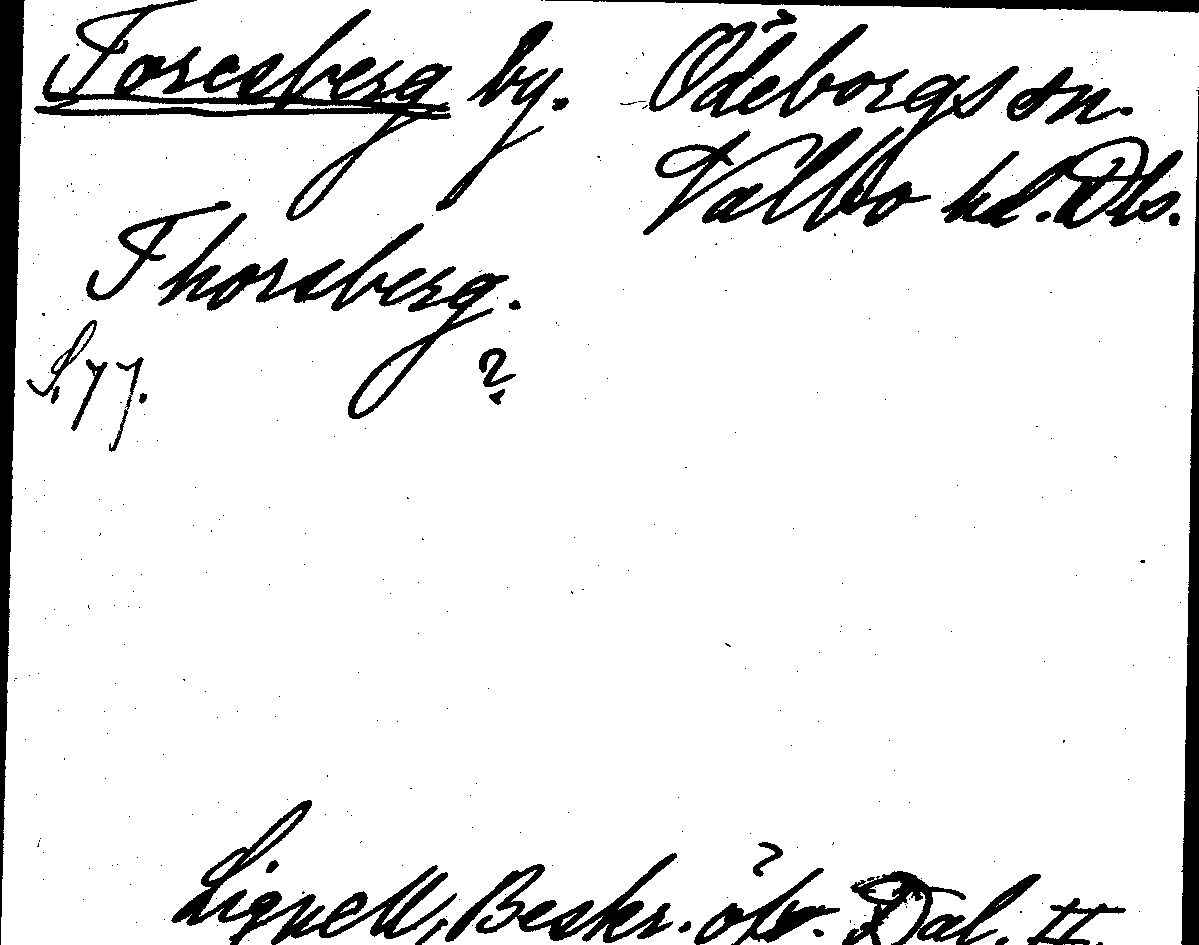 Toresberg by. Ödeborgs sn.
Valbo hd. Dls.
Thorsberg.
S. 77. ?
Lignell, Beskr. öfv. Dal. II.